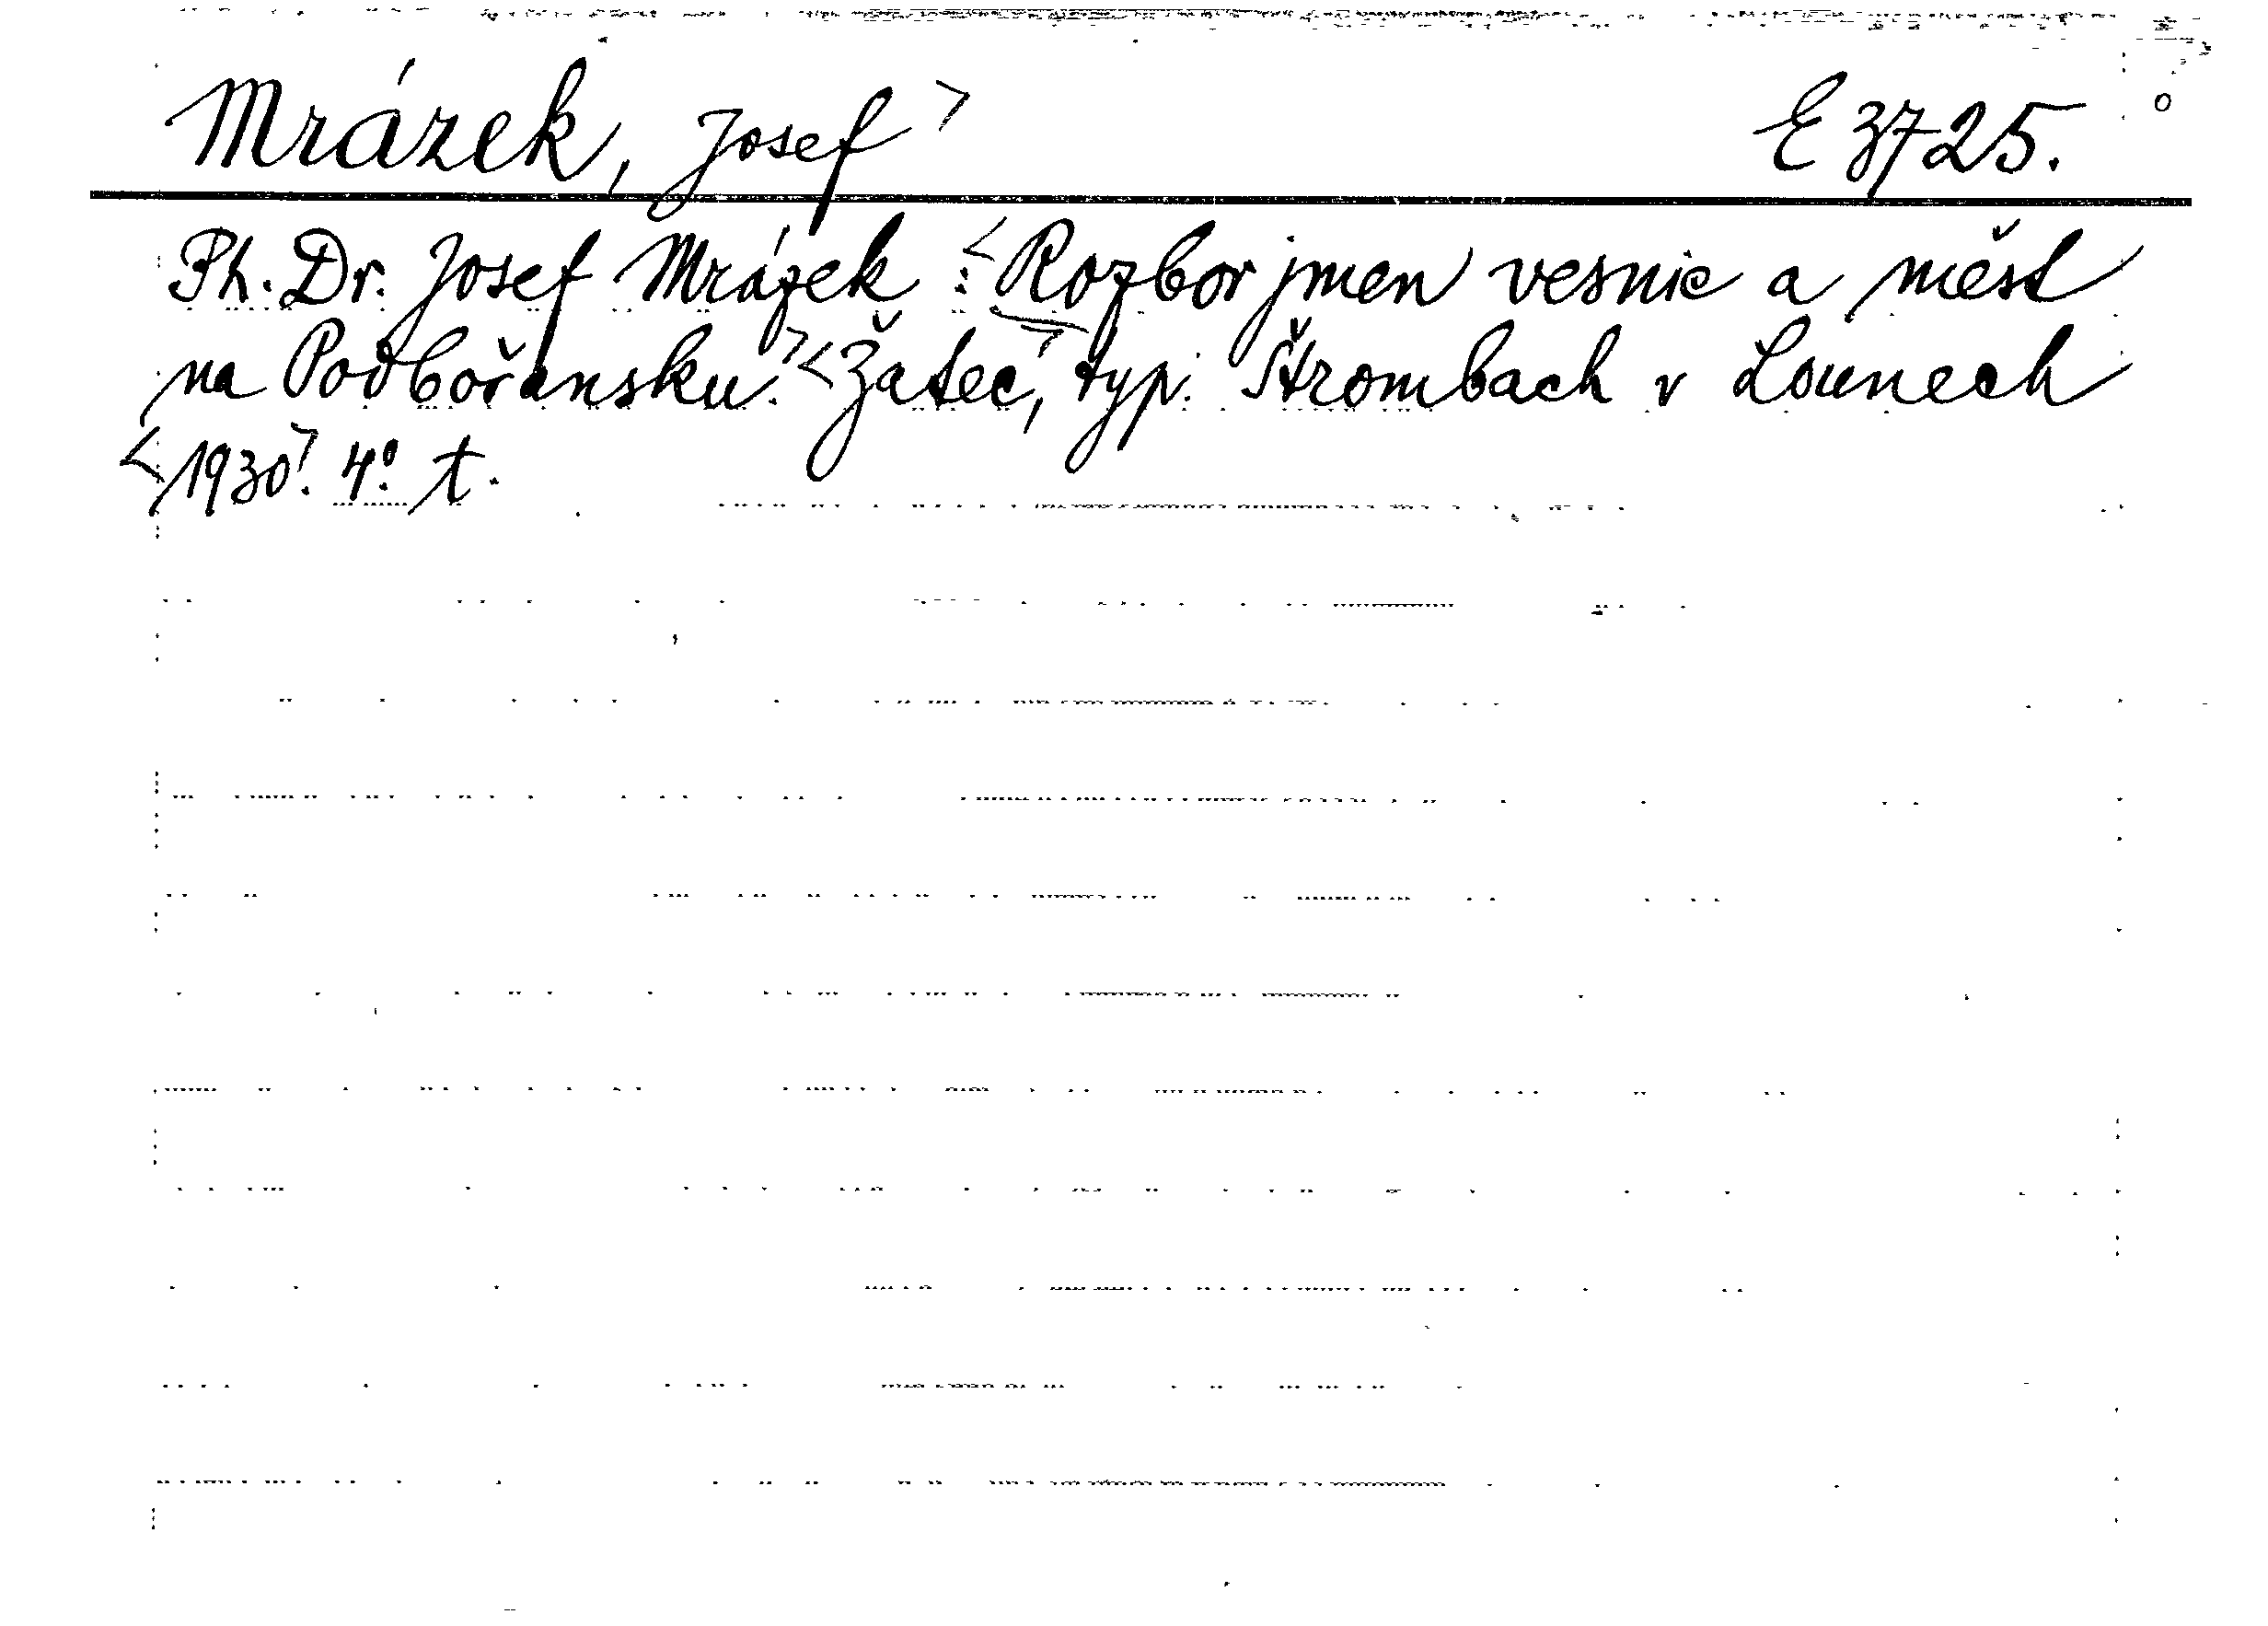 Mrázek, Josef> E 3725.
Ph. Dr. Josef Mrázek: <Rozbor jmen vesnic a měst
na Podbořansku.> <Žatec>, typ. Štrombach v Lounech
<1930>. 4º. t.